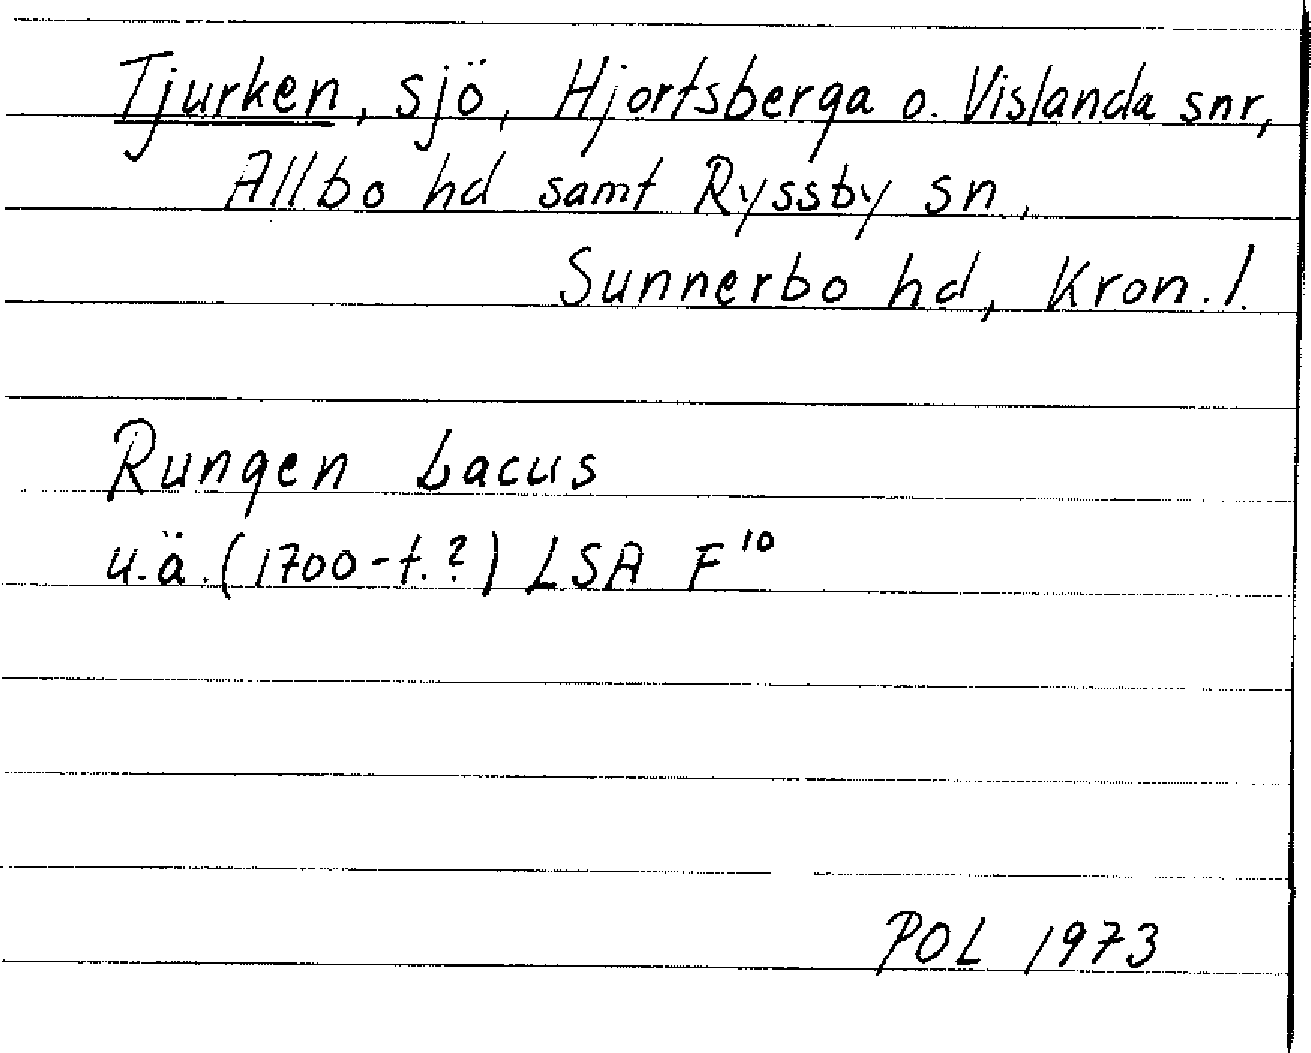 Tjurken, sjö, Hjortsberga o. Vislanda snr,
Allbo hd samt Ryssby sn,
Sunnerbo hd, Kron. l.
Rungen Lacus
u.ä. (1700-t.?) LSA F¹⁰
POL 1973